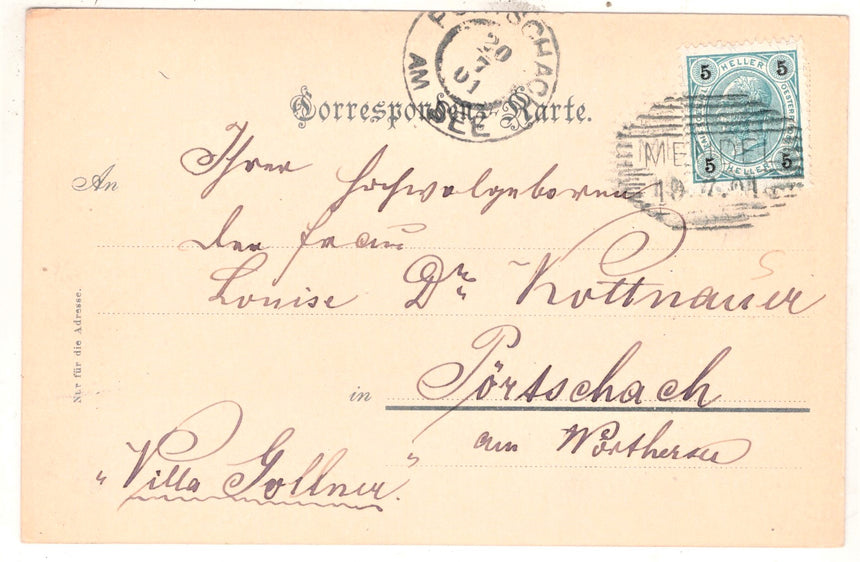 PÖRTSCHACH
AM SEE
20
7
01
5 HELLER 5
5 HELLER 5
MENDEL
19.7.01
Correspondenz-Karte.
An
Ihrer Hochwolgeboren
der Frau
Louise Dr. Kottnauer
in
Pörtschach
am Wörthersee
"Villa Gollner".
Nur für die Adresse.